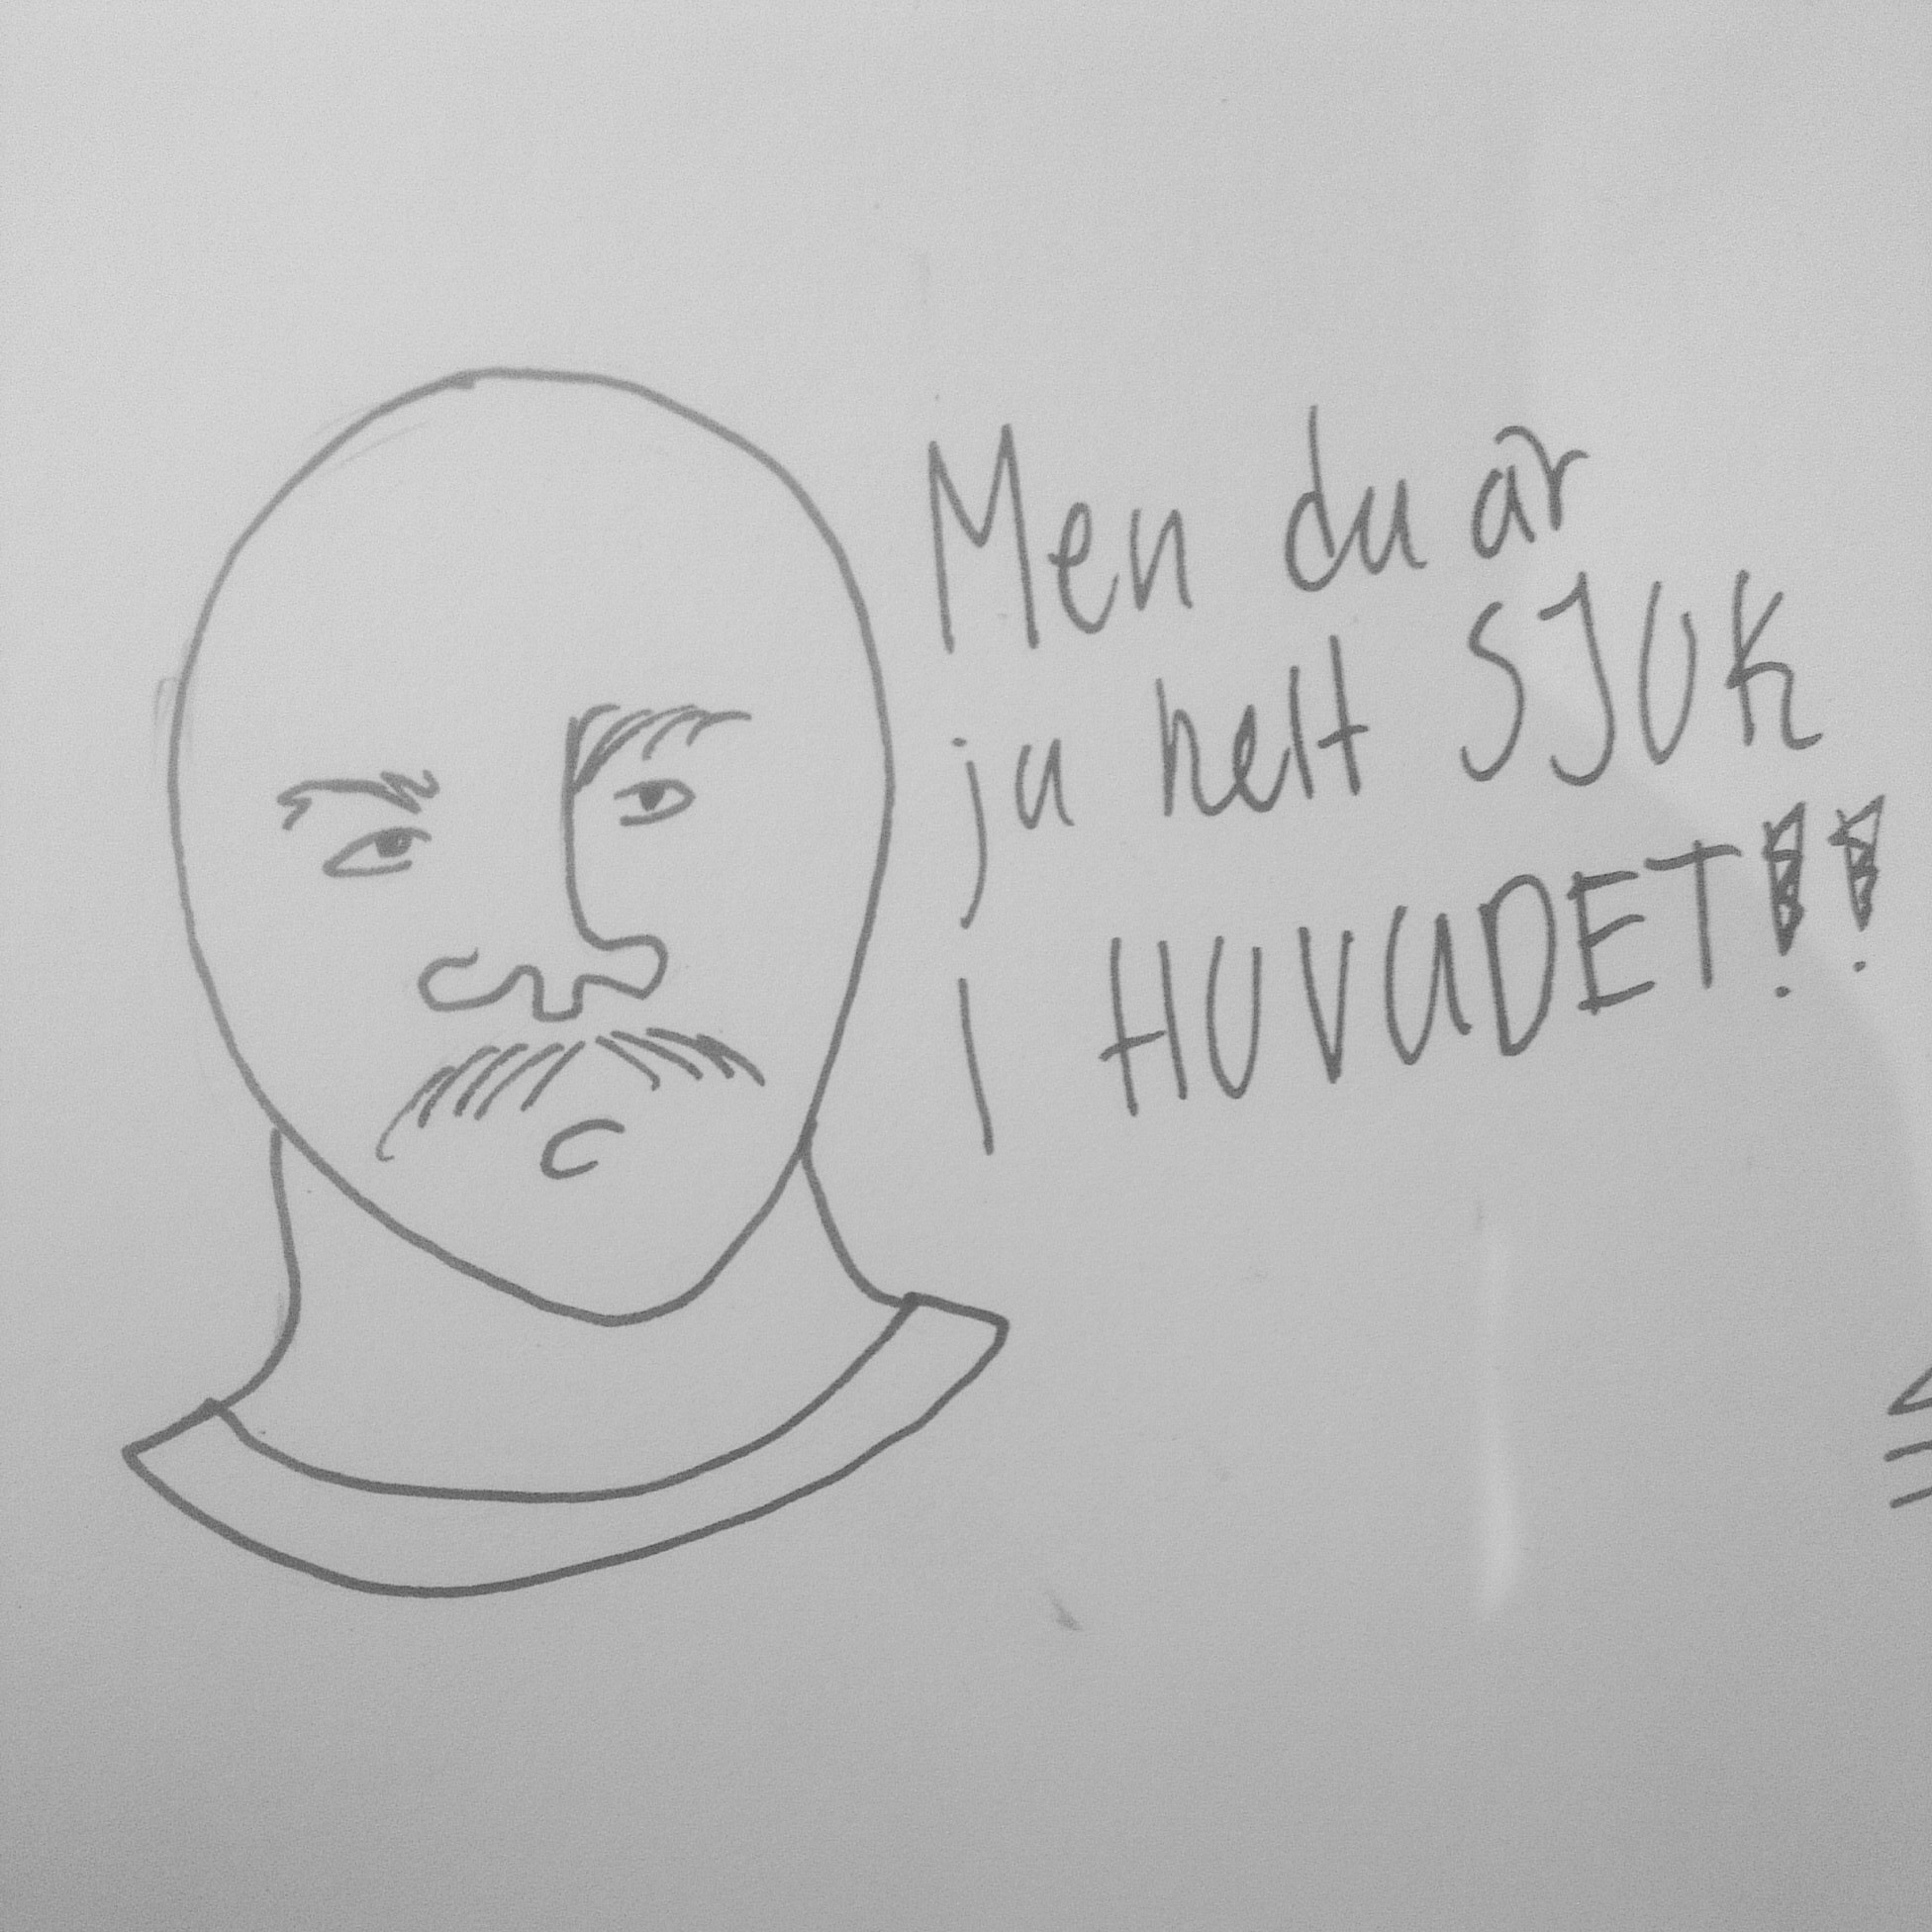 Men du är
ju helt SJUK
I HUVUDET!!